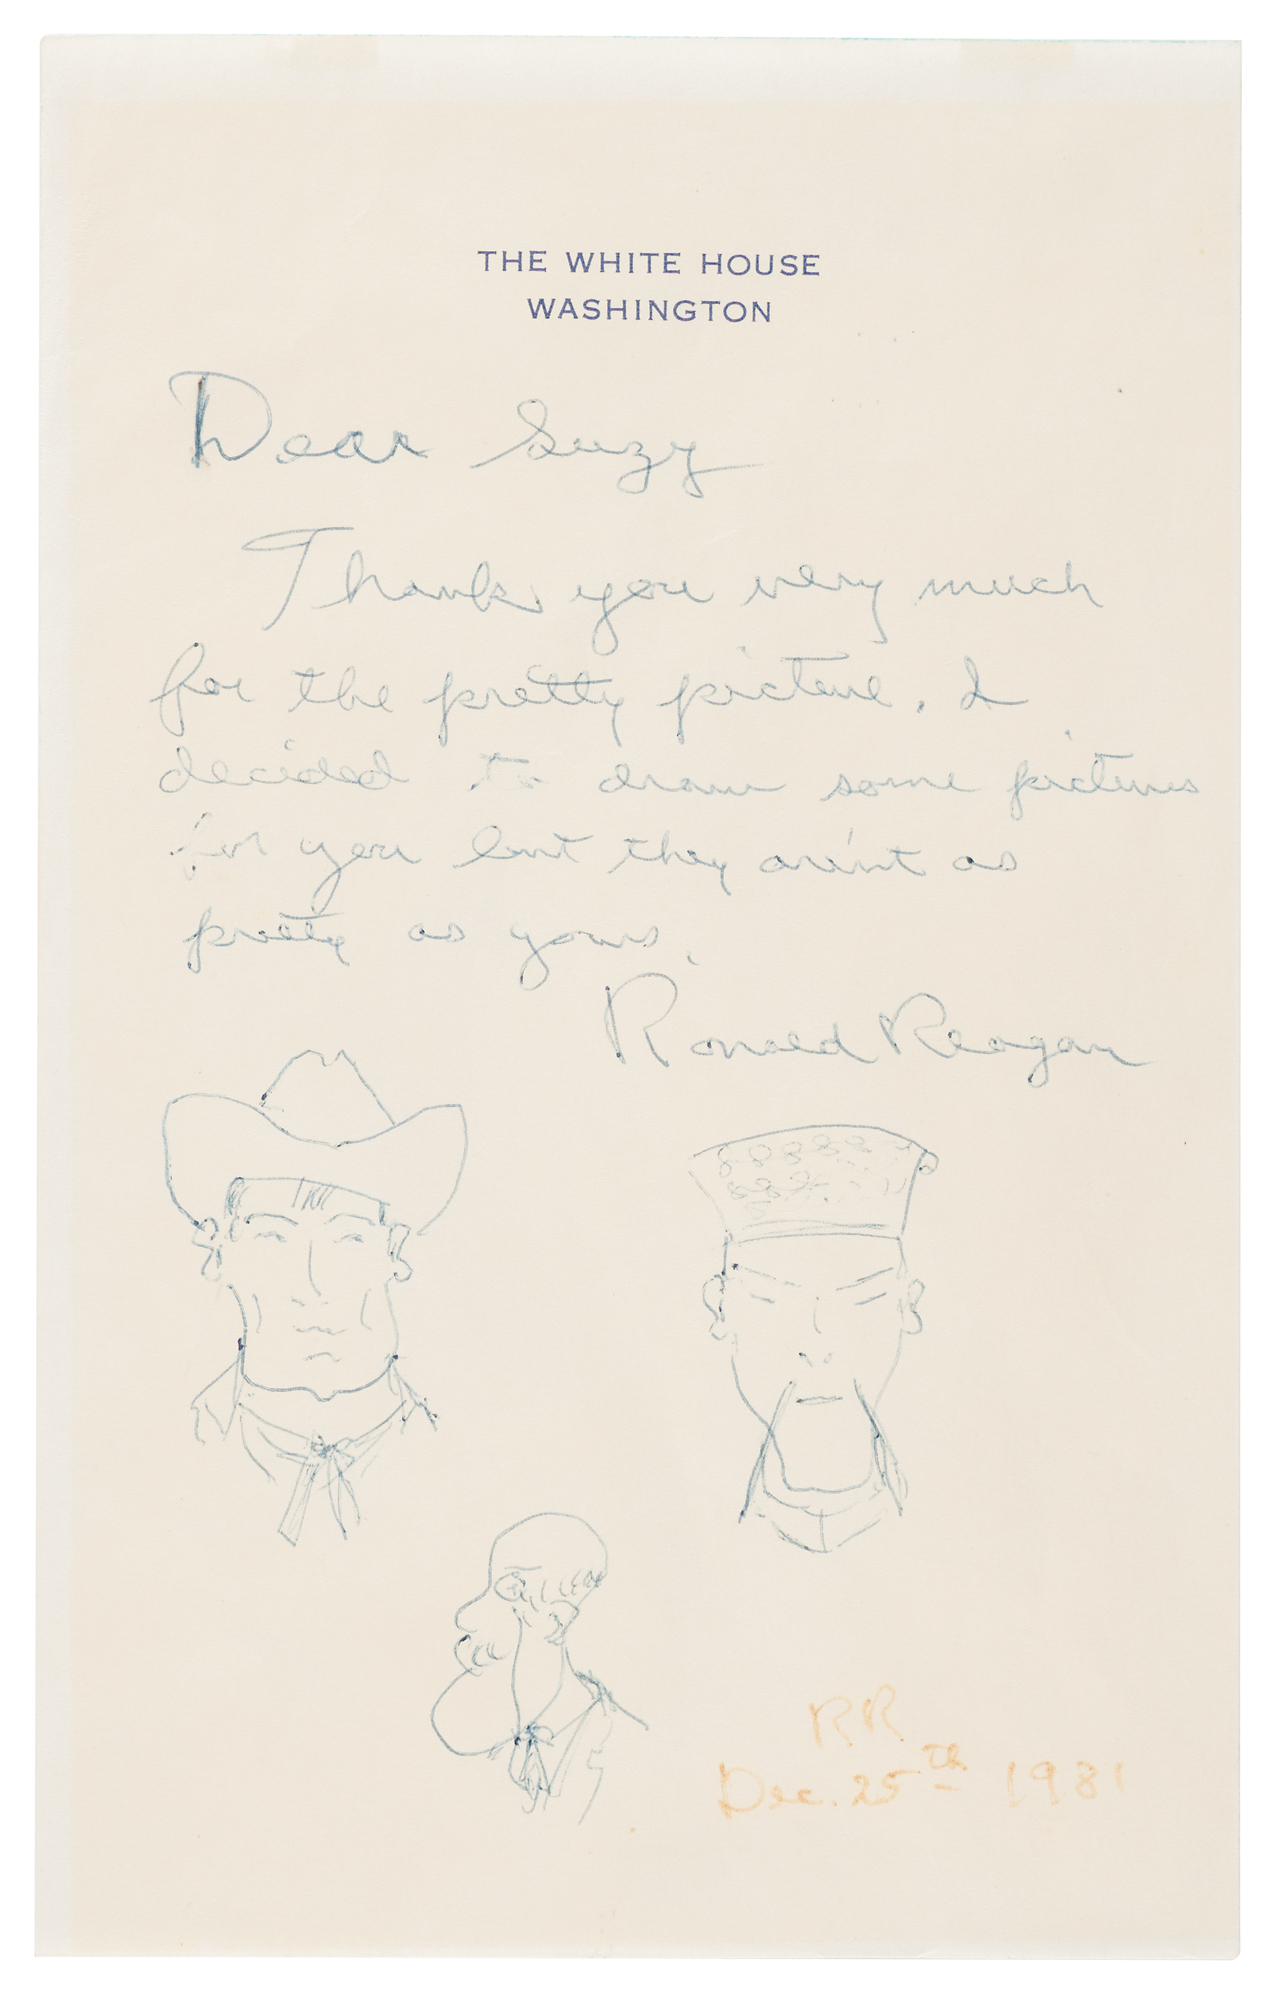 THE WHITE HOUSE
WASHINGTON
Dear Suzy
Thank you very much
for the pretty picture. I
decided to draw some pictures
for you but they are'nt as
pretty as yours.
Ronald Reagan
RR
Dec. 25th 1981